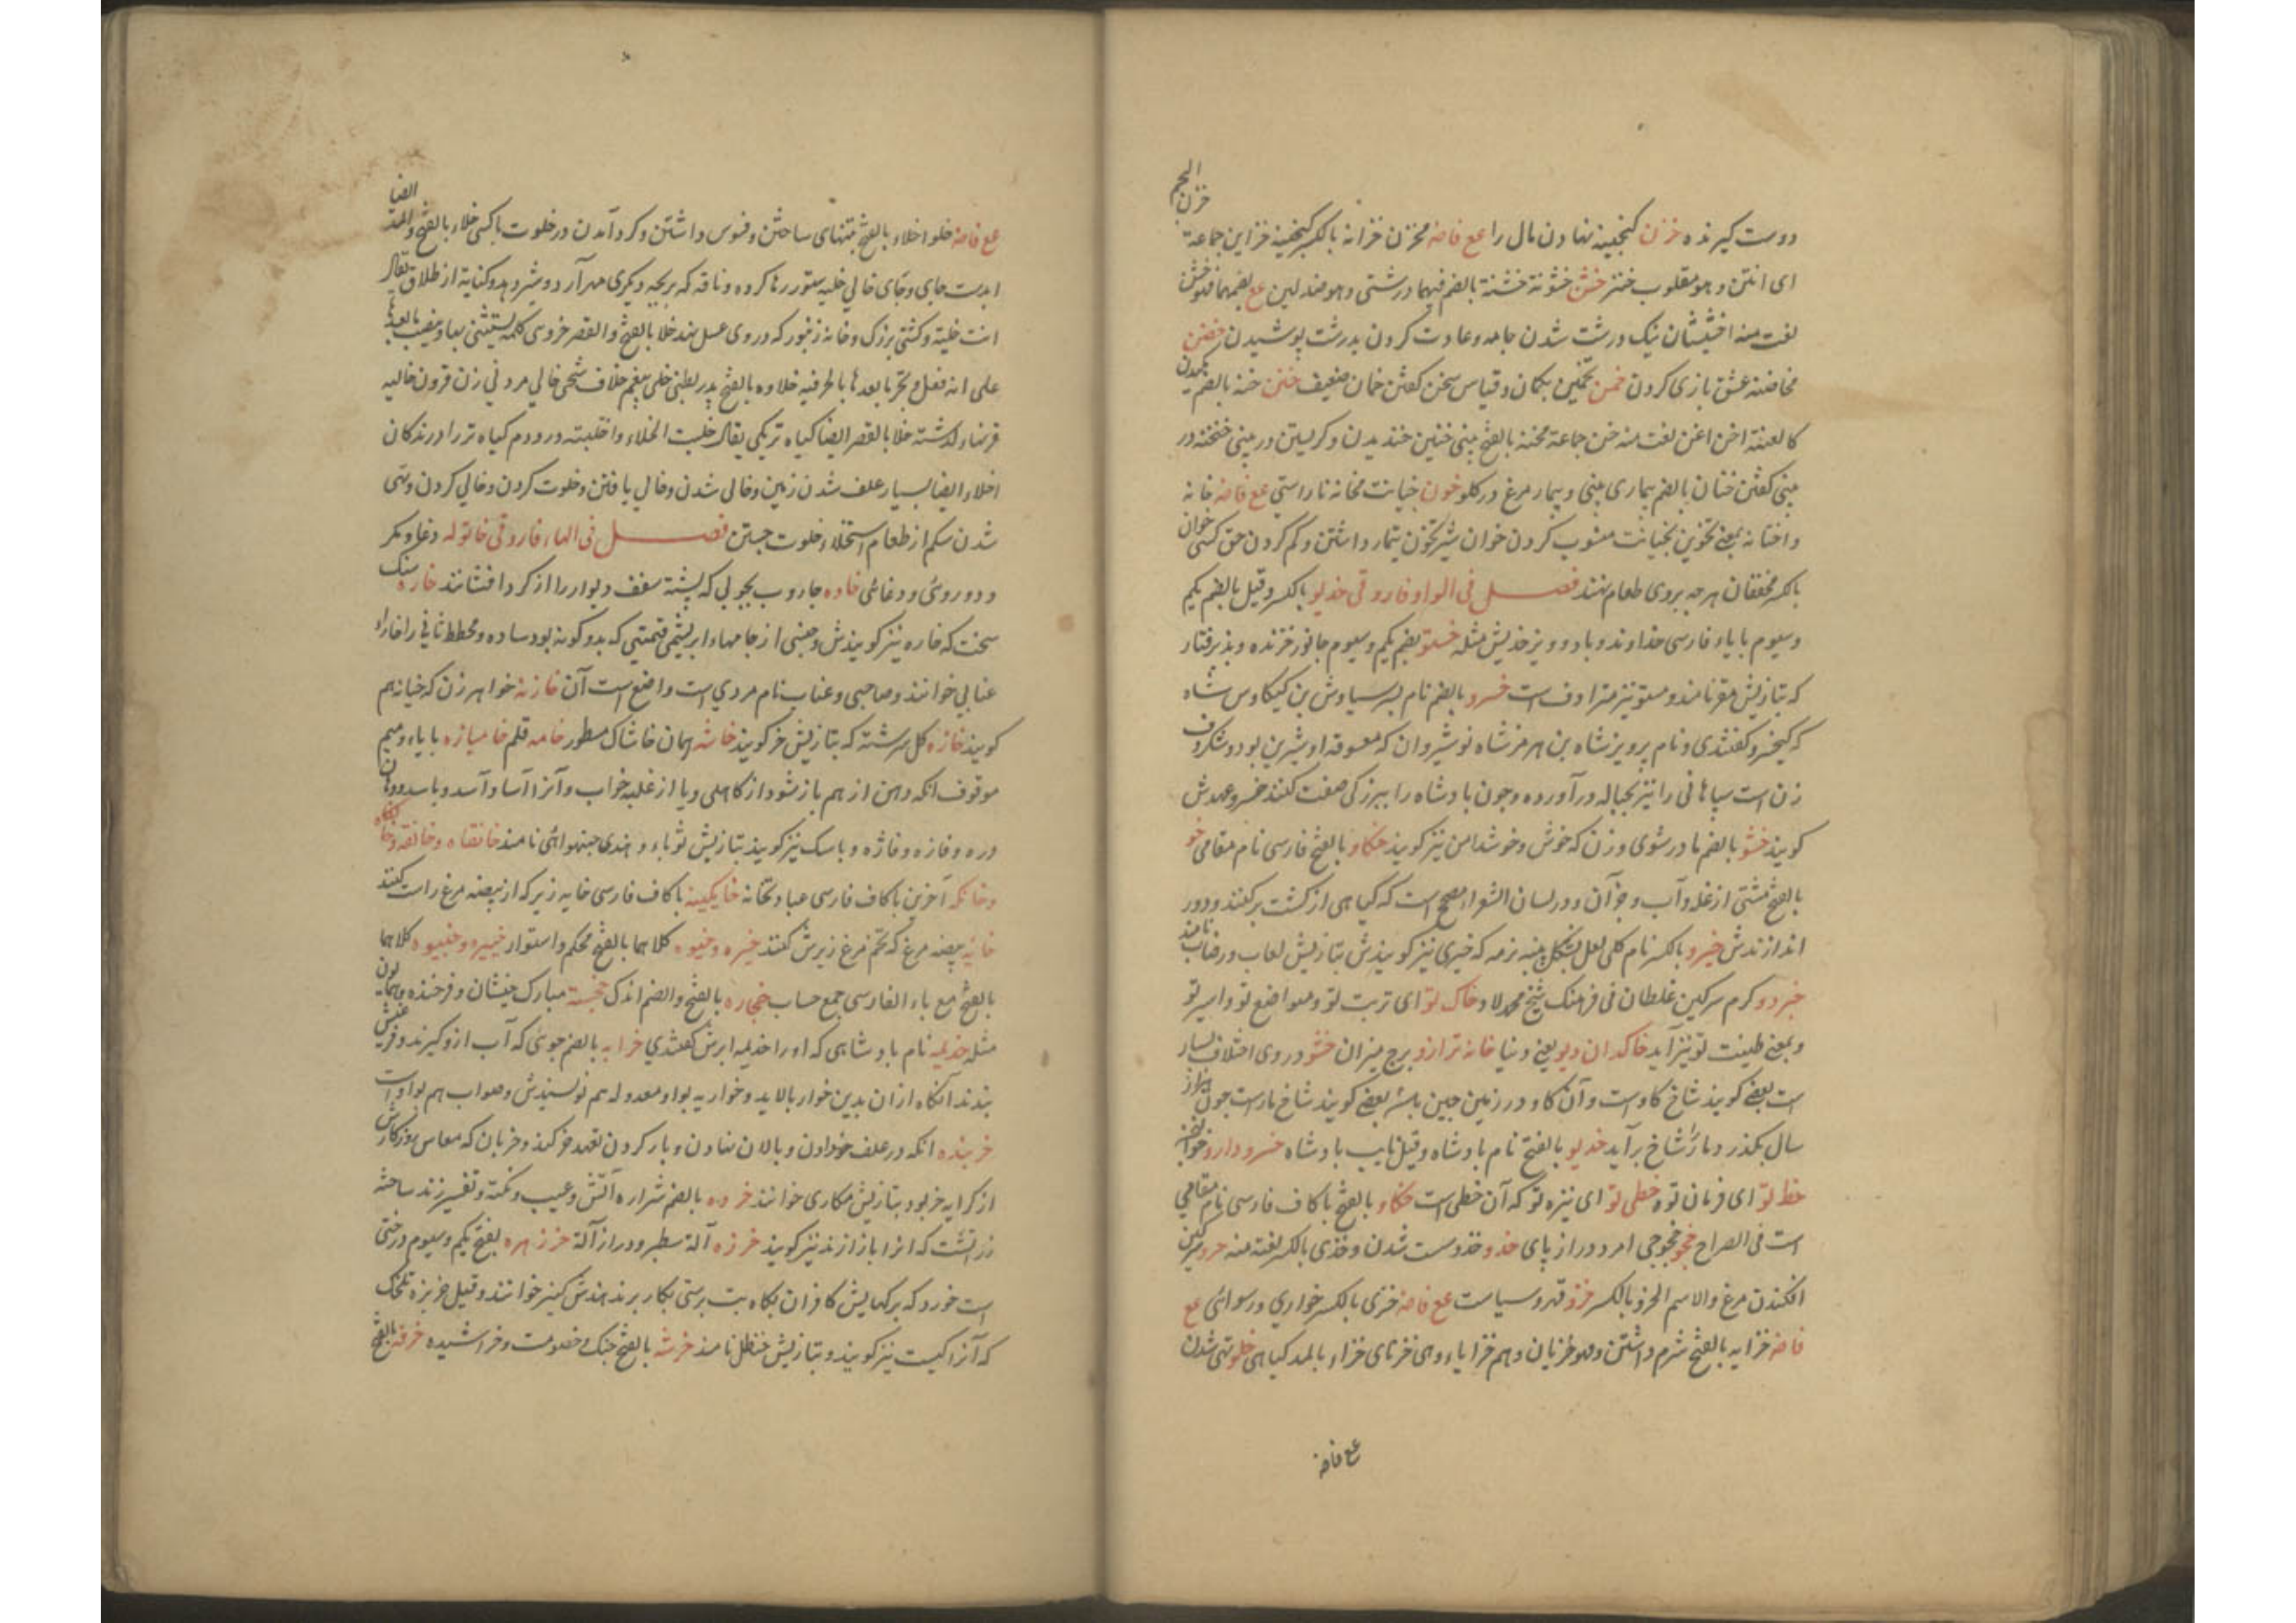 دوست کیرنده خزن کنجینه نهادن مال را مع فاضه مخزن خزانه بالکسر کنجینه خزاین جماعة خزن اللحم
ای انتن و هو مقلوب خنز خشن خشونة خشنة بالضم فیهما درشتی و هو ضد لین مع بضمهما
لغت منه اخشیشان نیک درشت شدن جامه و عادت کردن بدرشت پوشیدن خضن
مخاضنه عشق بازی کردن خمن تخمین بکمان و قیاس سخن کفتن خمان ضعیف خنن خنه بالضم
کالغنة اخن اغن لغت منه خن جماعة مخنة بالفتح بینی خنین خندیدن و کریستن در بینی خنخنه در
بینی کفتن خنان بالضم بیماری بینی و بیمار مرغ در کلو خون خیانت مخانه ناراستی مع فاضه خانه
و اختانه بمعنی تخوین بخیانت منسوب کردن خوان شیر تخون تیمار داشتن و کم کردن حق کسی خوان
بالکسر مخففان هرچه بروی طعام نهند فصل فی الواو فاروقی خدیو بالکسر و قیل بالضم یکم
و سیوم با یاء فارسی خداوند و باد و ویز خدیش مثله خستو بضم یکم و سیوم جانور خزنده و پذیرفتار
که بتازیش مقر نامند و معتو نیز مترادف است خسرو بالضم نام پسر سیاوش بن کیکاوس شاه
که کیخسرو کفتندی و نام پرویز شاه بن هرمز شاه نوشیروان که معسوقه او شیرین بود و شکر
زن است سپاهانی را نیز بحباله در آورده و چون بادشاه را ببزرکی صفت کنند خسرو عهدش
کویند خشو بالضم مادر شوی و زن که خوش و خوشدامن نیز کویند خکاو بالفتح فارسی نام مقامی خو
بالفتح مشتی از غله و آب و جز آن و در لسان الشعرا مصحح است که کیاهی از کشت برکنند و دور
اندازندش خیرو بالکسر نام کلی لعل بشکل پنبه نرمه که خیری نیز کویندش بتازیش لعاب و رضاب نامند
خبزدو کرم سرکین غلطان فی فرهنک شیخ محمد لاد خاک تو ای تربت تو و مواضع تو و اسیر تو
و بمعنی طینت تو نیز آید خاکدان دیو یعنی دنیا خانه ترازو برج میزان خشو در وی اختلاف بسیار
است بعضی کویند شاخ کاو است و آن کاو در زمین چین باشد بعضی کویند شاخ مار است چون هزار
سال بکذرد مار را شاخ بر آید خدیو بالفتح نام بادشاه و قیل نایب بادشاه خسرو دارو
خط تو ای فرمان تو خطی تو ای نیزه تو که آن خطی است خکاو بالفتح با کاف فارسی نام مقامی
است فی الصراح خجو خجوجی امرد دراز پای خذو خذوست شدن و خذی بالکسر لغة منه خرو سرکین
افکندن مرغ و الاسم الخرو بالکسر خزو قهر و سیاست مع فاضه خزی بالکسر خواری و رسوائی مع
فاضه خزایه بالفتح شرم داشتن و هو خزیان و هم خزایا و هی خزیای خزاء بالمد کیاهی خلو تهی شدن
مع فاضه
مع فاضه خلوا خلاء بالفتح بتنهای ساختن و فسوس داشتن و کرد آمدن در خلوت با کسی خلاء بالفتح و المد ایضا
ابدست جای و جای خالی خلیه ستور رها کرده و ناقه که بر بچه دیکری مهر آرد و شیر دهد و کنایة از طلاق یقال
انت خلیة و کشتی بزرک و خانه زنبور که در وی عسل نهد خلا بالفتح و القصر خروسی کلمه یستثنی بها و ینصب مابعدها
علی انه فعل و یجر مابعدها بالحرفیه خلاوه بالفتح پدر بطنی خلی بیغم خلاف شجی خالی مرد بی زن قرون خالیه
قرنهاء کذشته خلا بالقصر ایضا کیاه تر یکی یقال خلیت الخلاء و اختلیته درودم کیاه تر را درندکان
اخلاء ایضا بسیار علف شدن زمین و خالی شدن و خالی یافتن و خلوت کردن و خالی کردن و تهی
شدن شکم از طعام استخلاء خلوت جستن فصل فی الهاء فاروقی خاتوله دغا و مکر
و دوروئی و دغائی خاده جاروب بچوبی که بسته سقف و دیوار را از کرد افشانند خاره سنک
سخت که خاره نیز کویندش و جنسی از جامهاء ابریشمی قیمتی که بدو کونه بود ساده و مخطط ثانی را خاراء
عتابی خوانند و صاحبی و عتاب نام مردی است واضع است آن خازنه خواهر زن که خیازهم
کویند خازه کل سرشته که بتازیش خر کویند خاشه همان خاشاک مسطور خامه قلم خامیازه با یاء و میم
موقوف انکه دهن از هم باز شود از کاهلی و یا از غلبه خواب و آنرا آسا و آسد و باسد و دهان
دره و فازه و فاژه و باسک نیز کویند بتازیش ثوباء و هندی جنهوائی نامند خانقاه و خانقه و خانکاه
و خانکه آخرین با کاف فارسی عبادتخانه خایکینه با کاف فارسی خایه زیر که از بیضه مرغ راست کنند
خایه بیضه مرغ که تخم مرغ زیرش کنند خیره و خیوه کلاهما بالفتح محکم و استوار خبیره و خبیوه کلاهما
بالفتح مع باء الفارسی جمع حساب خجاره بالفتح و الضم اندک خجسته مبارک جنسان و فرخنده و همایون
مثله خذیمه نام بادشاهی که او را خذیمه ابرش کفتندی خرابه بالضم جوئی که آب ازو کیرند و فریش
بندند آنکاه ازان بدین خوار بالاید و خوارپه بواو معدوله هم نویسندش و صواب هم بواو است
خربنده انکه در علف خر دادن و پالان نهادن و بار کردن تعهد خر کند و خربان که معاش روزکارش
از کرایه خر بود بتازیش مکاری خوانند خرده بالضم شراره آتش و عیب و نکته و تفسیر زند ساخته
زردشت که انرا بازازند نیز کویند خرزه آلة سطبر و دراز آلة خرزهره بفتح یکم و سیوم درختی
است خورد که برکهایش کافران بکاه بت پرستی بکار برند هندش کنیر خوانند و قیل خربزه تلخک
که آنرا کبست نیز کویند و بتازیش حنظل نامند خرشه بالفتح جنک خصومت و خراشیده خرفه بالفتح